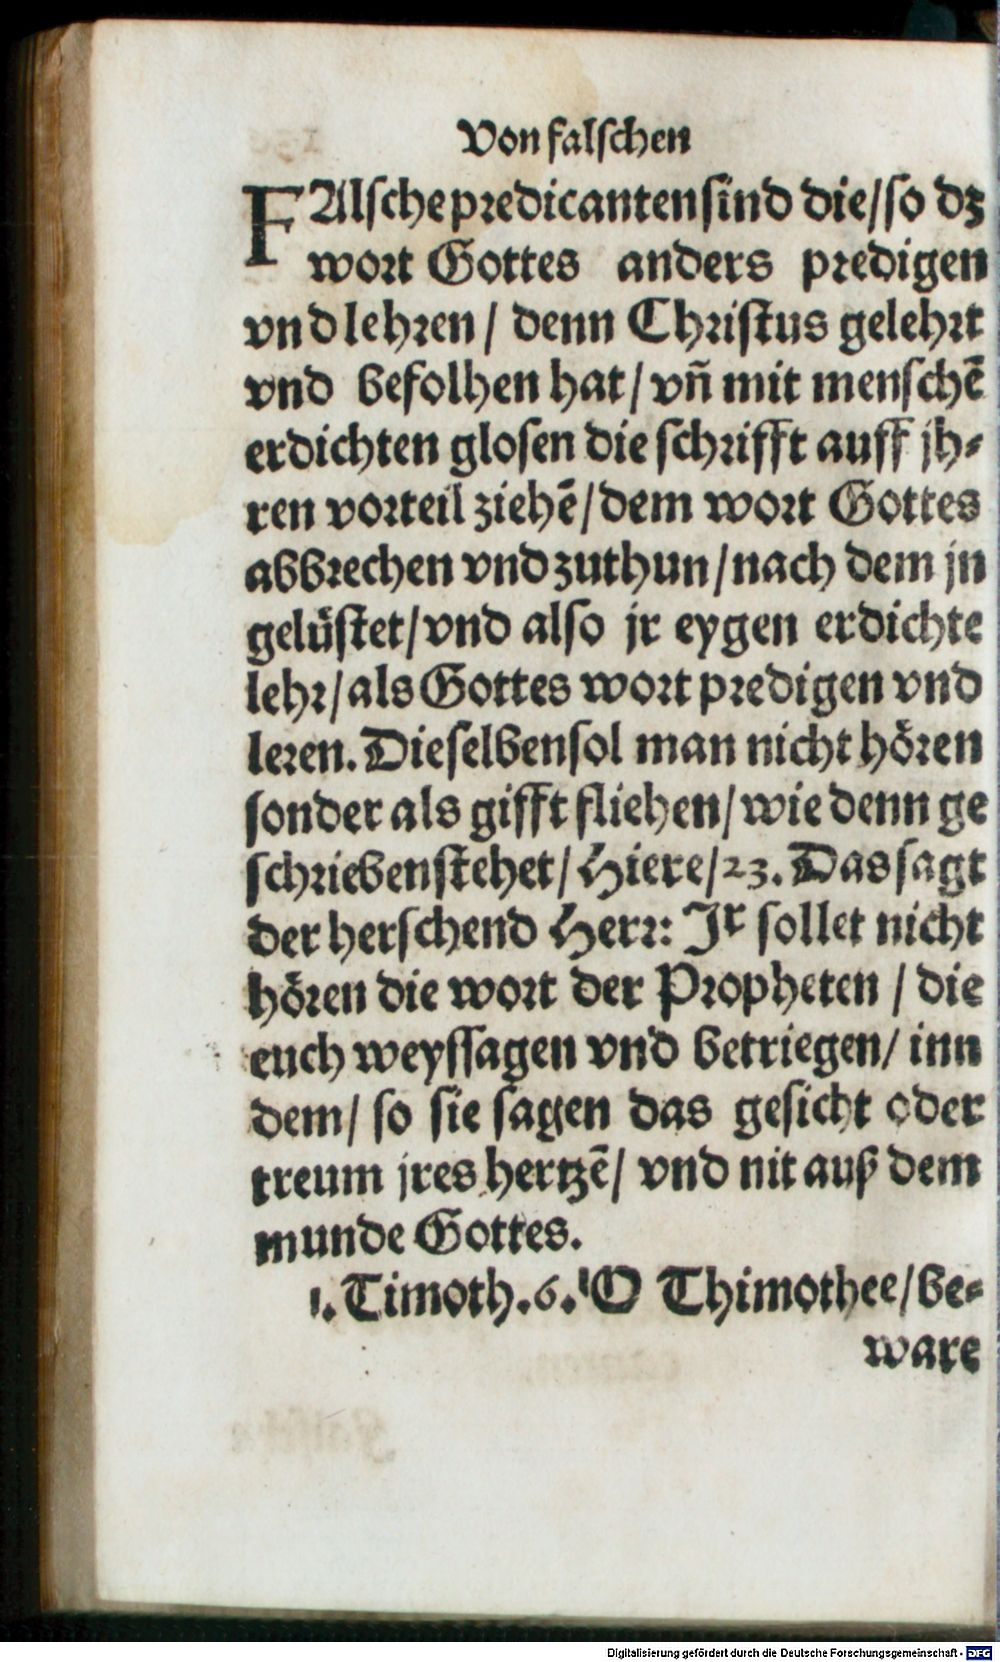 Von falschen
FAlsche predicanten sind die/ so dz
wort Gottes anders predigen
vnd lehren/ denn Christus gelehrt
vnd befolhen hat/ vñ mit menschē
erdichten glosen die schrifft auff jh-
ren vorteil ziehē/ dem wort Gottes
abbrechen vnd zuthun/ nach dem jn
gelüstet/ vnd also jr eygen erdichte
lehr/ als Gottes wort predigen vnd
leren. Dieselben sol man nicht hören
sonder als gifft fliehen/ wie denn ge
schrieben stehet/ Hiere/ 23. Das sagt
der herschend Herr: Jr sollet nicht
hören die wort der Propheten / die
euch weyssagen vnd betriegen/ inn
dem/ so sie sagen das gesicht oder
treum jres hertzē/ vnd nit auß dem
munde Gottes.
1. Timoth. 6. O Thimothee/ be-
ware
Digitalisierung gefördert durch die Deutsche Forschungsgemeinschaft - DFG